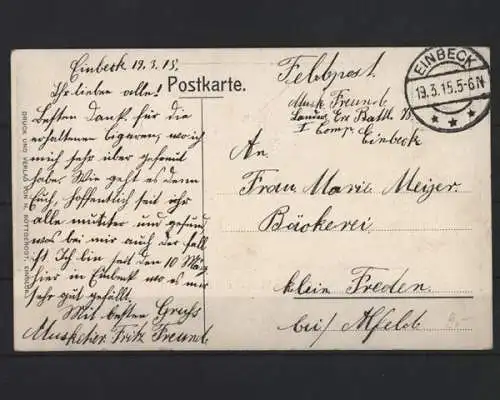 Einbeck 19.3.15.
Ihr lieben alle!
Besten Dank für die
erhaltenen Cigaren, wo ich
mich sehr über gefreut
habe. Wie geht es denn
Euch, hoffentlich seit ihr
alle munter und gesund
was bei mir auch der Fall
ist. Ich bin seit den 10 März
hier in Einbeck wo es mir
sehr gut gefällt.
Mit besten Gruß
Musketier Fritz Freund
Postkarte.
Feldpost.
EINBECK
19.3.15.5-6N
Musk Freund
Ers Batl.
I Comp Einbeck
An
Frau Marie Meyer.
Bäckerei
klein Freden.
bei Alfeld
DRUCK UND VERLAG VON H. EINBECK